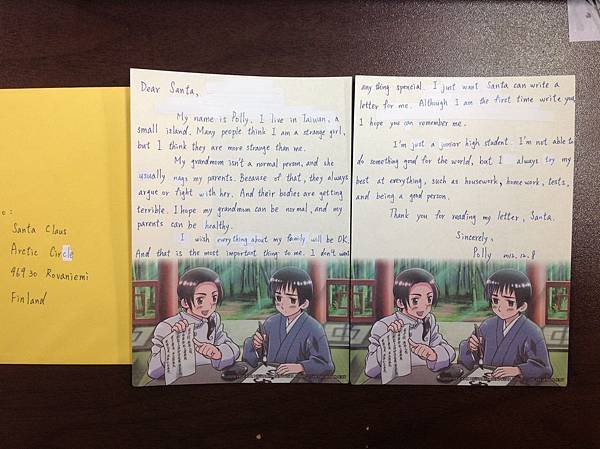 o :
Santa Claus
Arctic Circle
96930 Rovaniemi
Finland
Dear Santa,
My name is Polly. I live in Taiwan, a
small island. Many people think I am a strange girl,
but I think they are more strange than me.
My grandmom isn't a normal person, and she
usually nags my parents. Because of that, they always
argue or fight with her. And their bodies are getting
terrible. I hope my grandmom can be normal, and my
parents can be healthy.
I wish everything about my family will be OK.
And that is the most important thing to me. I don't want
anything spencial. I just want Santa can write a
letter for me. Although I am the first time write you,
I hope you can remember me.
I'm just a junior high student. I'm not able to
do something good for the world, but I always try my
best at everything, such as housework, homework, tests,
and being a good person.
Thank you for reading my letter, Santa.
Sincerely,
Polly 2012. 12. 8